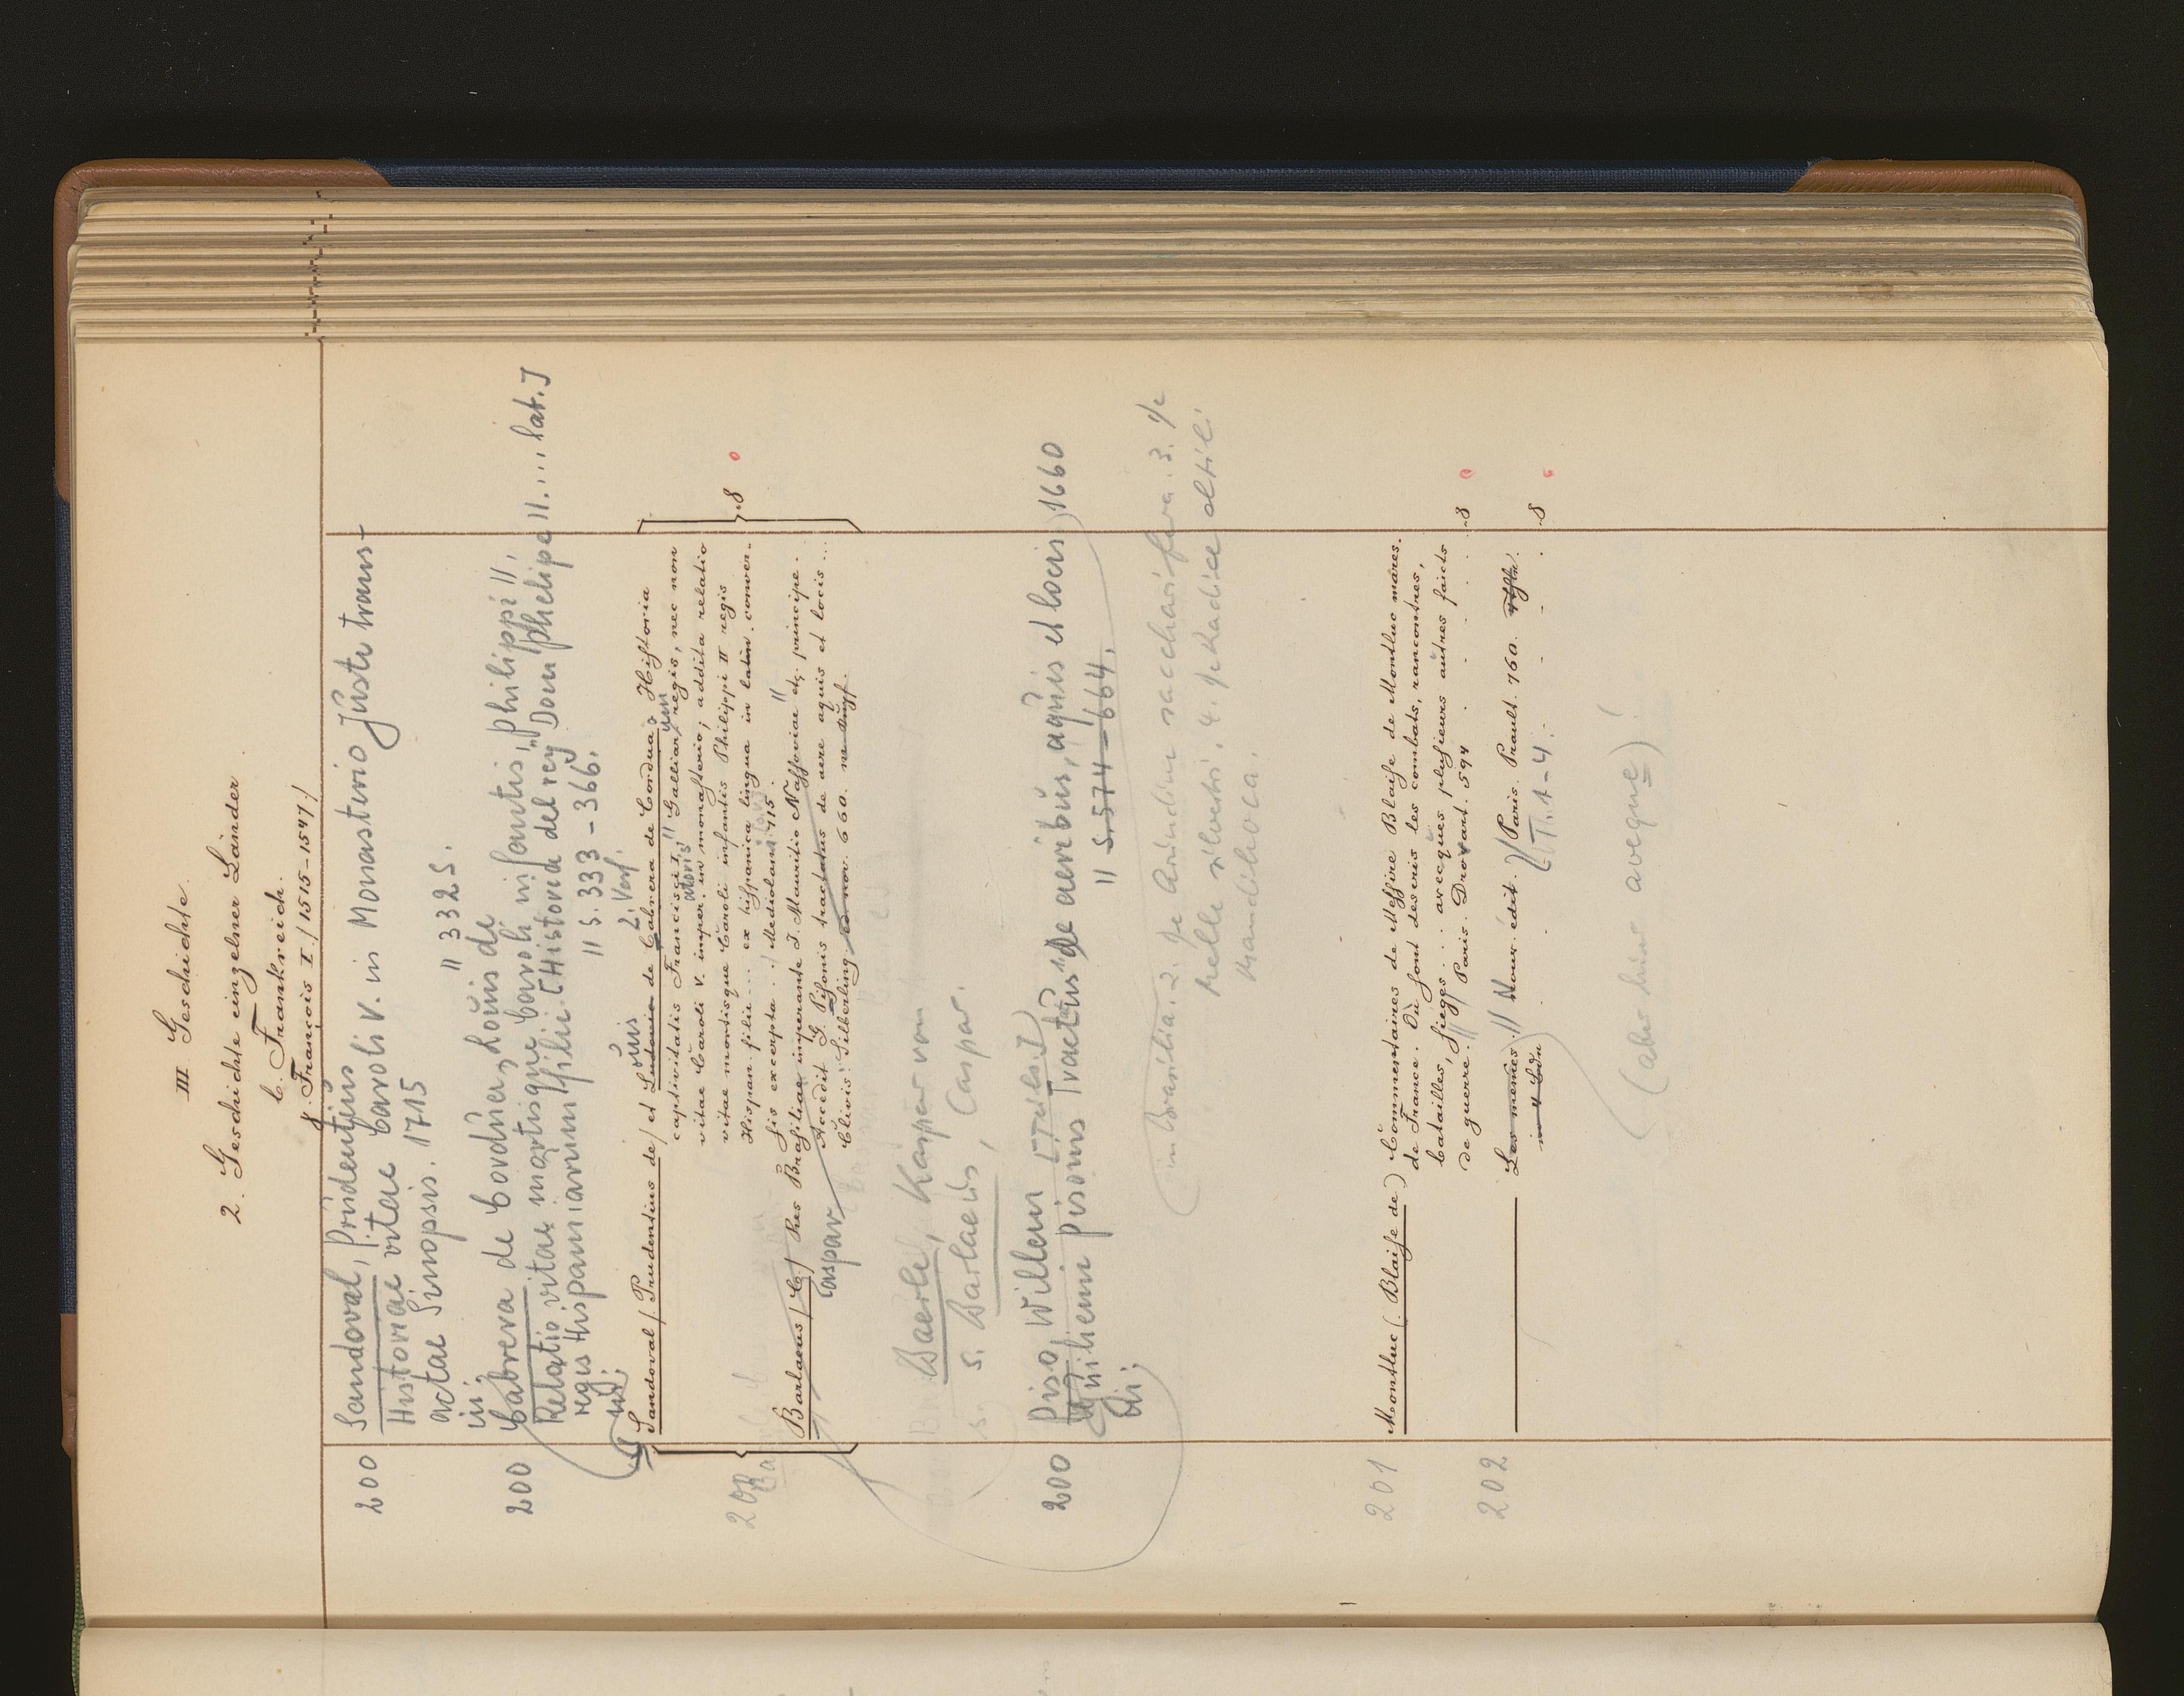 III Geschichte.
2. Geschichte einzelner Länder
C. Frankreich.
f. François I. /: 1515-1547 :/
200 Sandoval, Prudentius
Historiae vitae Caroli V. in Monasterio Juste trans-
actae Sinopsis. 1715 // 332 S.
in:
200 Cabrera de Cordúa, Louis de
Relatio vitae mortisque Caroli infantis, Philippi II,
regis Hispaniarum filii [Historia del rey "Dom Phelipe II.... lat.]
in: // S. 333-366.
2. Verf.
Louis
Sandoval /: Prudentius de / et Ludovico de Cabrera de Cordua, Historia
captivitatis Francisci I, Galliarum regis, nec non
vitae Caroli V. imper. in monasterio; addita relatio
vitae mortisque Caroli infantis Philippi II regis
Hispan. filii ... ex hispanica lingua in latin. conver-
sis excerpta ... Mediolani 715. 8
Barlaeus /: C. / Res Brasiliae imperante J. Mauritio Nassoviae etc. principe.
Caspar
Accedit G. Pisonis tractatus de aere aquis et locis ...
Clivis: Silberling. 660.
Baerle, Kaspar von
s. Barlaeus, Caspar.
200 Piso, Willem
Guilhemi Pisonis Tractatus de aeribus, aquis et locis 1660
// S. 574-664.
in Brasilia. 2. de Arundine saccharifera. 3. de
Melle silvestri. 4. de Radice altili
Mandihoca.
201 Montluc (: Blaise de) Commentaires de Messire Blaise de Montluc mares.
de France. Où sont descris les combats, rancontres,
batailles, sieges ... avecques plusieurs autres faicts
de guerre. // Paris. Drovart. 594 8
202 Les mêmes. // Nouv. édit. // Paris. Prault. 760.
in 4 Bdn T. 1-4. 8
(aber hier avecque)!